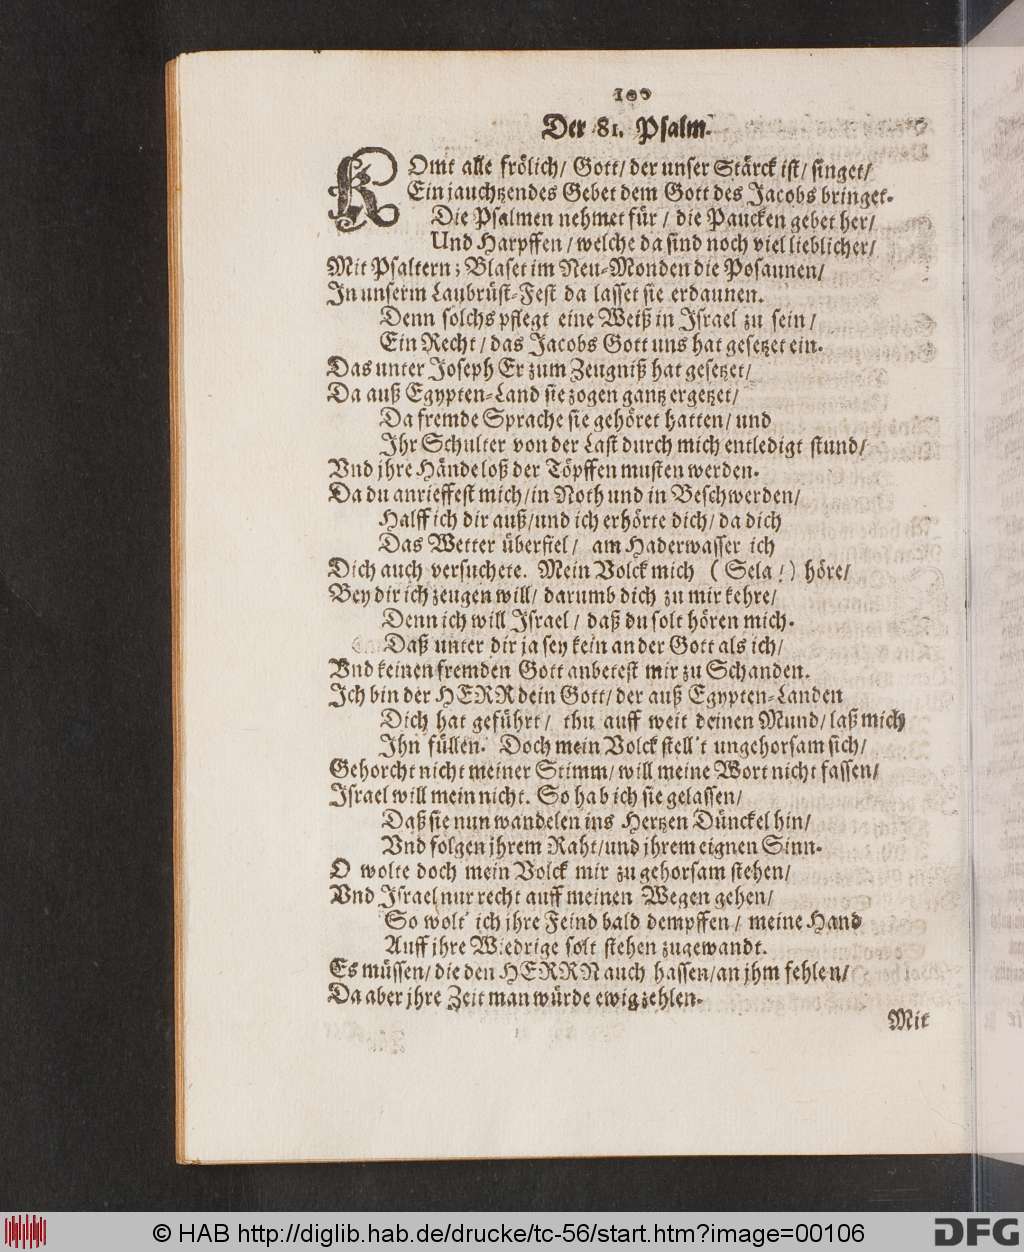 100
Der 81. Psalm.
KOmt alle frölich/ Gott/ der unser Stärck ist/ singet/
Ein jauchtzendes Gebet dem Gott des Jacobs bringet.
Die Psalmen nehmet für/ die Paucken gebet her/
Und Harpffen/ welche da sind noch viel lieblicher/
Mit Psaltern; Blaset im Neu-Monden die Posaunen/
In unserm Laubrüst-Fest da lasset sie erdaunen.
Denn solchs pflegt eine Weiß in Israel zu sein/
Ein Recht/ das Jacobs Gott uns hat gesetzet ein.
Das unter Joseph Er zum Zeugniß hat gesetzet/
Da auß Egypten-Land sie zogen gantz ergetzet/
Da fremde Sprache sie gehöret hatten/ und
Ihr Schulter von der Last durch mich entledigt stund/
Vnd jhre Hände loß der Töpffen musten werden.
Da du anrieffest mich/ in Noth und in Beschwerden/
Halff ich dir auß/ und ich erhörte dich/ da dich
Das Wetter überfiel/ am Haderwasser ich
Dich auch versuchete. Mein Volck mich (Sela!) höre/
Bey dir ich zeugen will/ darumb dich zu mir kehre/
Denn ich will Israel/ daß du solt hören mich.
Daß unter dir ja sey kein ander Gott als ich/
Vnd keinen fremden Gott anbetest mir zu Schanden.
Ich bin der HERR dein Gott/ der auß Egypten-Landen
Dich hat geführt/ thu auff weit deinen Mund/ laß mich
Ihn füllen. Doch mein Volck stell't ungehorsam sich/
Gehorcht nicht meiner Stimm/ will meine Wort nicht fassen/
Israel will mein nicht. So hab ich sie gelassen/
Daß sie nun wandelen ins Hertzen Dünckel hin/
Vnd folgen jhrem Raht/ und jhrem eignen Sinn.
O wolte doch mein Volck mir zu gehorsam stehen/
Vnd Israel nur recht auff meinen Wegen gehen/
So wolt' ich jhre Feind bald dempffen/ meine Hand
Auff jhre Wiedrige solt stehen zugewandt.
Es müssen/ die den HERRN auch hassen/ an jhm fehlen/
Da aber jhre Zeit man würde ewig zehlen.
Mit
© HAB http://diglib.hab.de/drucke/tc-56/start.htm?image=00106
DFG